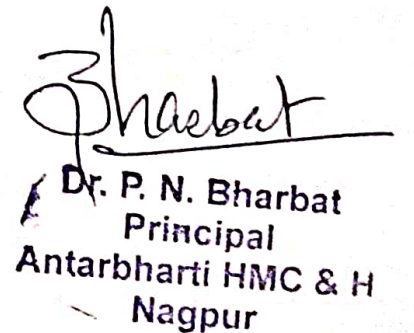 Bharbat
Dr. P. N. Bharbat
Principal
Antarbharti HMC & H
Nagpur